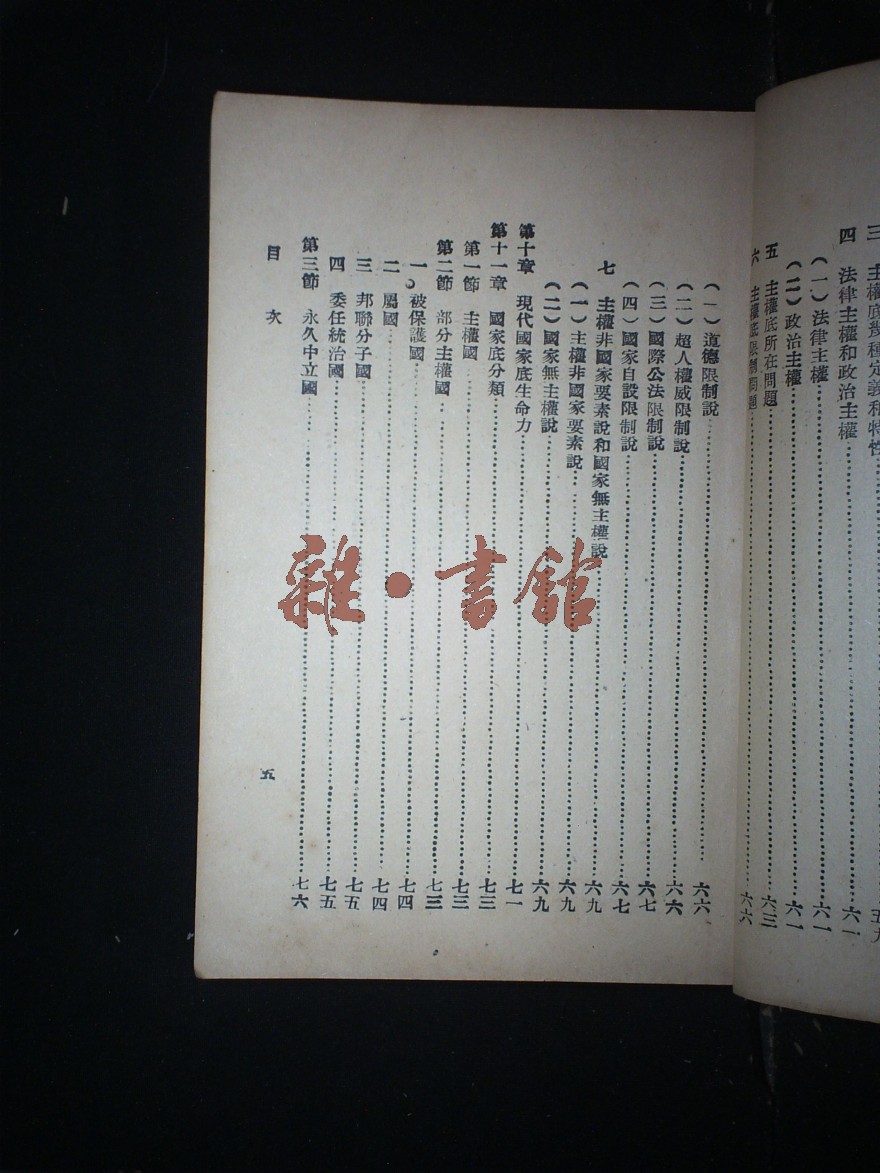 三 主權底幾種定義和特性 五九
四 法律主權和政治主權 六一
（一）法律主權 六一
（二）政治主權 六一
五 主權底所在問題 六三
六 主權底限制問題 六六
（一）道德限制說 六六
（二）超人權威限制說 六六
（三）國際公法限制說 六七
（四）國家自設限制說 六七
七 主權非國家要素說和國家無主權說 六九
（一）主權非國家要素說 六九
（二）國家無主權說 六九
第十章 現代國家底生命力 七一
第十一章 國家底分類 七三
第一節 主權國 七三
第二節 部分主權國 七三
一。被保護國 七四
二 屬國 七四
三 邦聯分子國 七五
四 委任統治國 七五
第三節 永久中立國 七六
目次 五
雜·書館